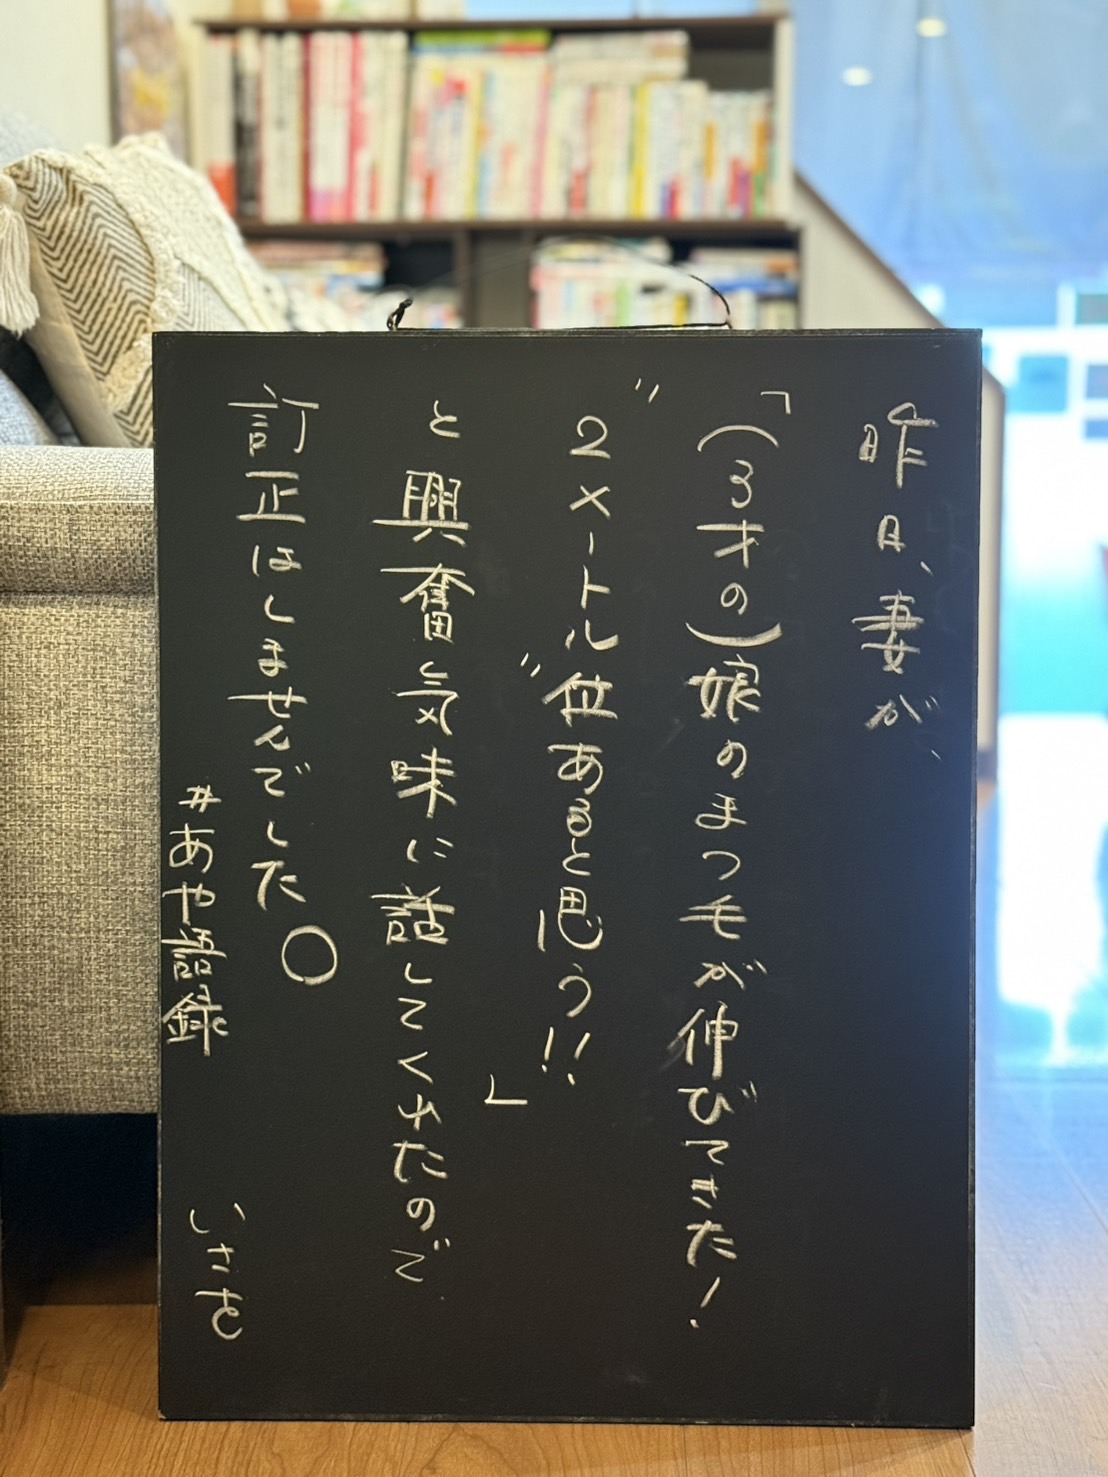 昨日、妻が、
「(3才の)娘のまつ毛が伸びてきた!
"2メートル"位あると思う!!」
と興奮気味に話してくれたので
訂正はしませんでした○
#あや語録
いさを